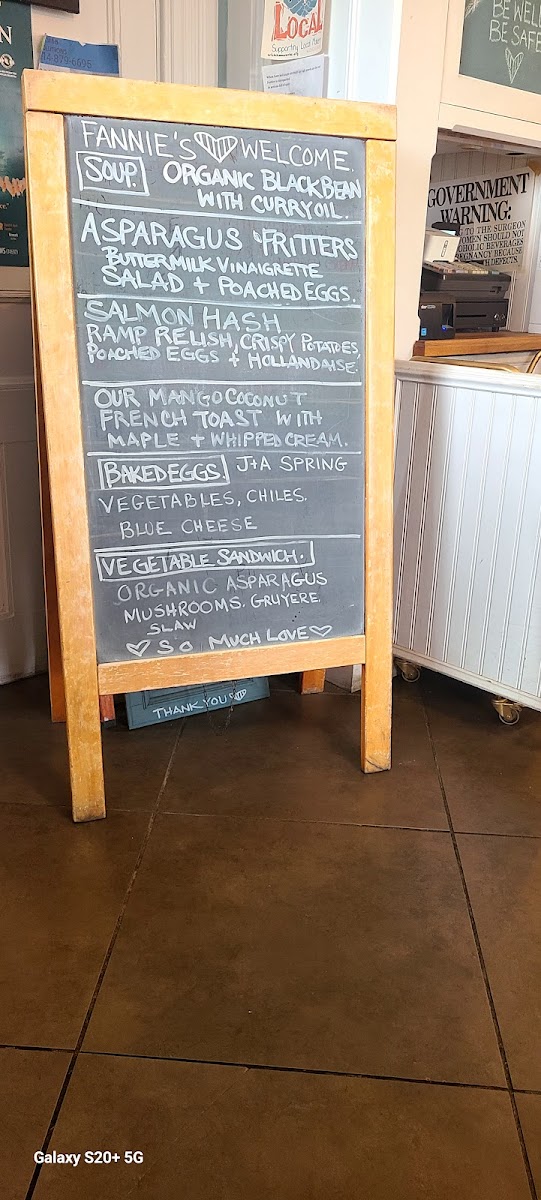 LOCAL
Supporting Local
BE WELL
BE SAFE
FANNIE'S WELCOME.
SOUP. ORGANIC BLACK BEAN
WITH CURRY OIL.
ASPARAGUS FRITTERS
BUTTERMILK VINAIGRETTE
SALAD + POACHED EGGS.
SALMON HASH
RAMP RELISH, CRISPY POTATOES,
POACHED EGGS + HOLLANDAISE.
OUR MANGO COCONUT
FRENCH TOAST WITH
MAPLE + WHIPPED CREAM.
BAKED EGGS. J+A SPRING
VEGETABLES, CHILES.
BLUE CHEESE
VEGETABLE SANDWICH.
ORGANIC ASPARAGUS
MUSHROOMS. GRUYERE.
SLAW
SO MUCH LOVE
THANK YOU
GOVERNMENT
WARNING:
TO THE SURGEON
WOMEN SHOULD NOT
BEVERAGES
BECAUSE
DEFECTS.
Galaxy S20+ 5G